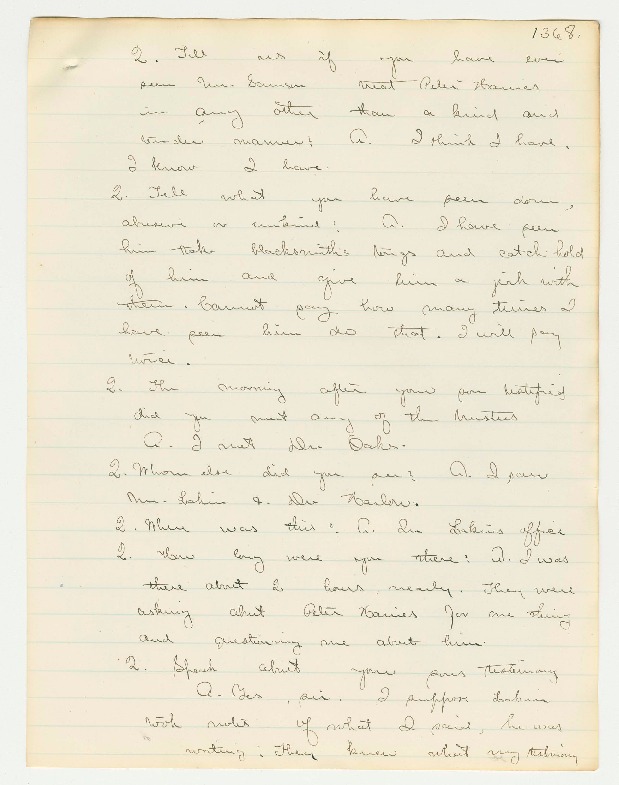 1368.
Q. Tell us if you have ever
seen Mr. treat Peter Haines
in any other than a kind and
tender manner? A. I think I have.
I know I have.
Q. Tell what you have seen done,
abusive or unkind? A. I have seen
him take blacksmiths tongs and catch hold
of him and give him a jerk with
them. Cannot say how many times I
have seen him do that. I will say
twice.
Q. The morning after your son testified
did you meet any of the trustees
A. I met Dr. Oaks.
Q. Whom else did you see? A. I saw
Mr. Lakin & Dr Harlow.
Q. Where was this? A. In Lakins office
Q. How long were you there? A. I was
there about 2 hours, nearly. They were
asking about Peter Haines for one thing
and questioning me about him.
Q. Speak about your sons testimony
A. Yes, sir. I suppose Lakin
took notes of what I said, he was
writing. They knew what my testimony